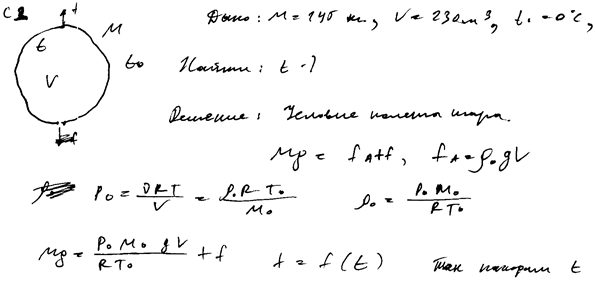 C1
f
M
t
t₀
V
f
Дано: M = 145 кг, V = 230 м³, t₀ = 0°C,
Найти: t - ?
Решение: Условие полета шара.
Mg = f_A + f, f_A = ρ₀gV
P₀ = νRT/V = ρ₀RT₀/M₀ ρ₀ = P₀M₀/RT₀
Mg = P₀M₀gV/RT₀ + f f = f(t) Так находим t